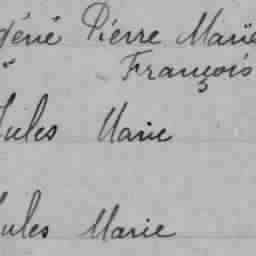 géné Pierre Marie
" François
Jules Marie
Jules Marie